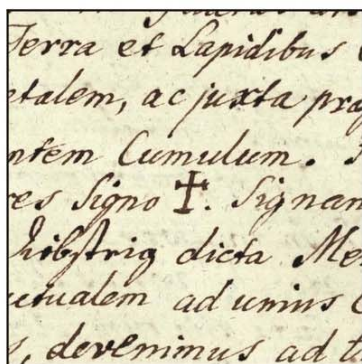 Terra et Lapidibus
etalem, ac juxta
ntem Cumulum.
res Signo ✝. Signan
dicta Me
utualem ad unius
s, devenimus ad